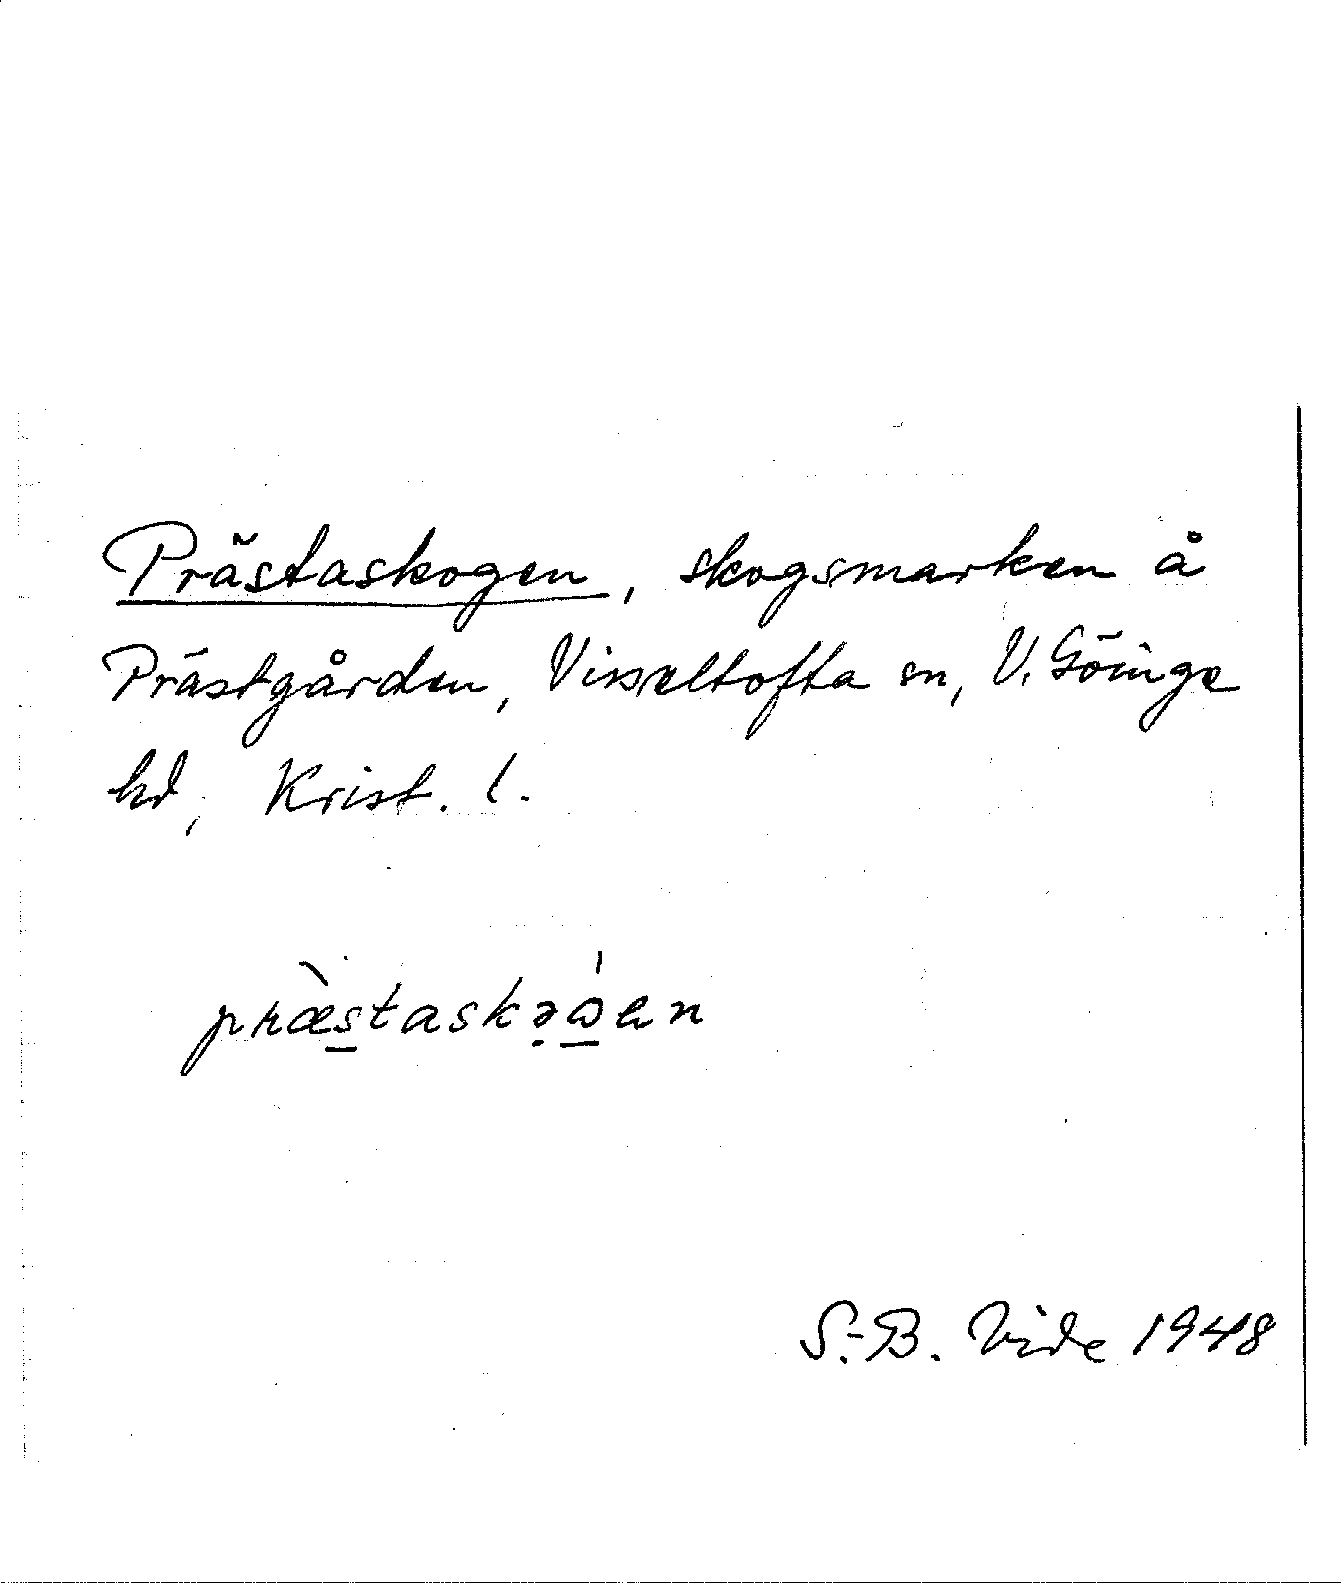 Prästaskogen, skogsmarken å
Prästgården, Visseltofta sn, V. Göinge
hd, Krist. l.
S.-B. Vide 1948